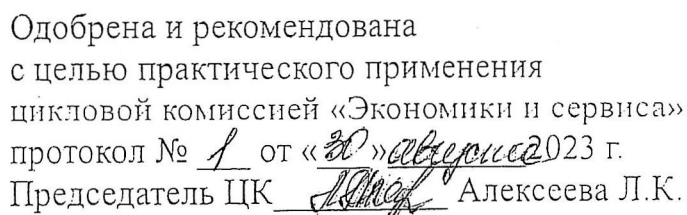 Одобрена и рекомендована
с целью практического применения
цикловой комиссией «Экономики и сервиса»
протокол № 1 от «30» августа 2023 г.
Председатель ЦК Алексеева Л.К.